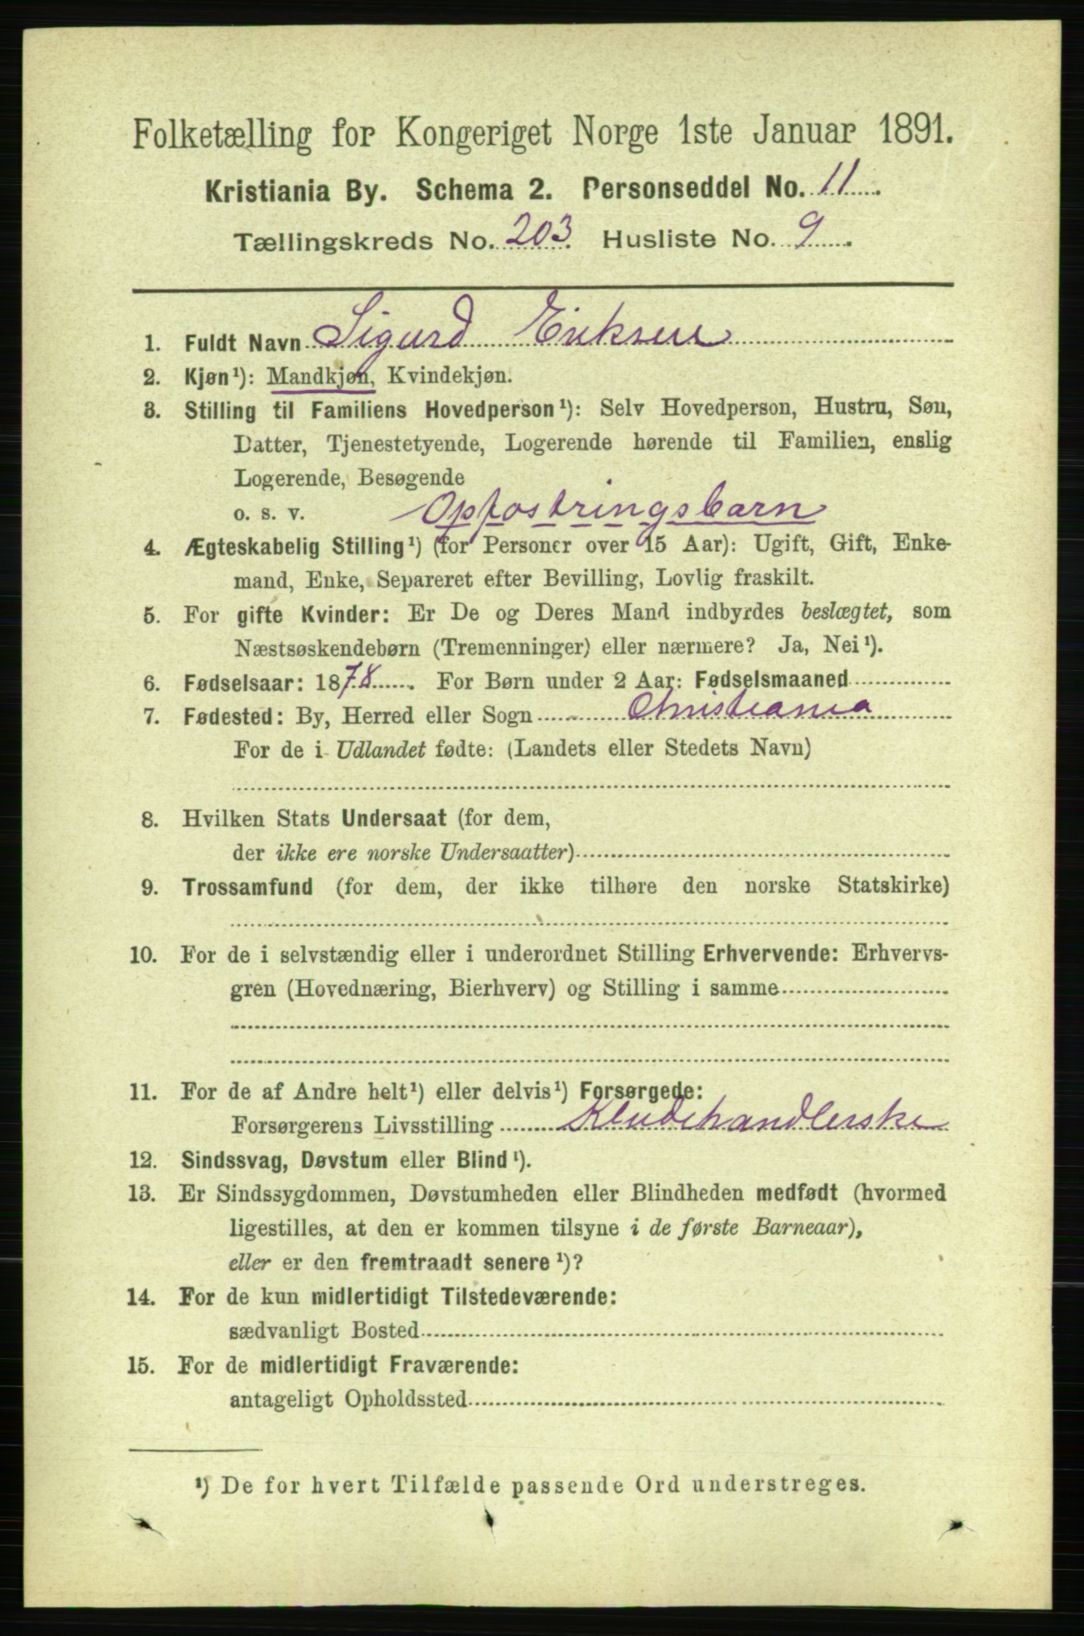 Folketælling for Kongeriget Norge 1ste Januar 1891.
Kristiania By. Schema 2. Personseddel No. 11.
Tællingskreds No. 203. Husliste No. 9.
1. Fuldt Navn Sigurd Eriksen
2. Kjøn¹): Mandkjøn, Kvindekjøn.
3. Stilling til Familiens Hovedperson¹): Selv Hovedperson, Hustru, Søn,
Datter, Tjenestetyende, Logerende hørende til Familien, enslig
Logerende, Besøgende
o. s. v. Opfostringsbarn
4. Ægteskabelig Stilling¹) (for Personer over 15 Aar): Ugift, Gift, Enke-
mand, Enke, Separeret efter Bevilling, Lovlig fraskilt.
5. For gifte Kvinder: Er De og Deres Mand indbyrdes beslægtet, som
Næstsøskendebørn (Tremenninger) eller nærmere? Ja, Nei¹).
6. Fødselsaar: 1878. For Børn under 2 Aar: Fødselsmaaned
7. Fødested: By, Herred eller Sogn Christiania
For de i Udlandet fødte: (Landets eller Stedets Navn)
8. Hvilken Stats Undersaat (for dem,
der ikke ere norske Undersaatter)
9. Trossamfund (for dem, der ikke tilhøre den norske Statskirke)
10. For de i selvstændig eller i underordnet Stilling Erhvervende: Erhvervs-
gren (Hovednæring, Bierhverv) og Stilling i samme
11. For de af Andre helt¹) eller delvis¹) Forsørgede:
Forsørgerens Livsstilling Kludehandlerske
12. Sindssvag, Døvstum eller Blind¹).
13. Er Sindssygdommen, Døvstumheden eller Blindheden medfødt (hvormed
ligestilles, at den er kommen tilsyne i de første Barneaar),
eller er den fremtraadt senere¹)?
14. For de kun midlertidigt Tilstedeværende:
sædvanligt Bosted
15. For de midlertidigt Fraværende:
antageligt Opholdssted
¹) De for hvert Tilfælde passende Ord understreges.